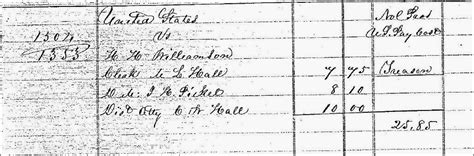 United States Nol
1504 Vs U.S. Pay Cost
1553 H. H. Williamson
Clerk M L Hall 7 75 Treason
8 10
Dist Atty C W Hall 10 00
25.85